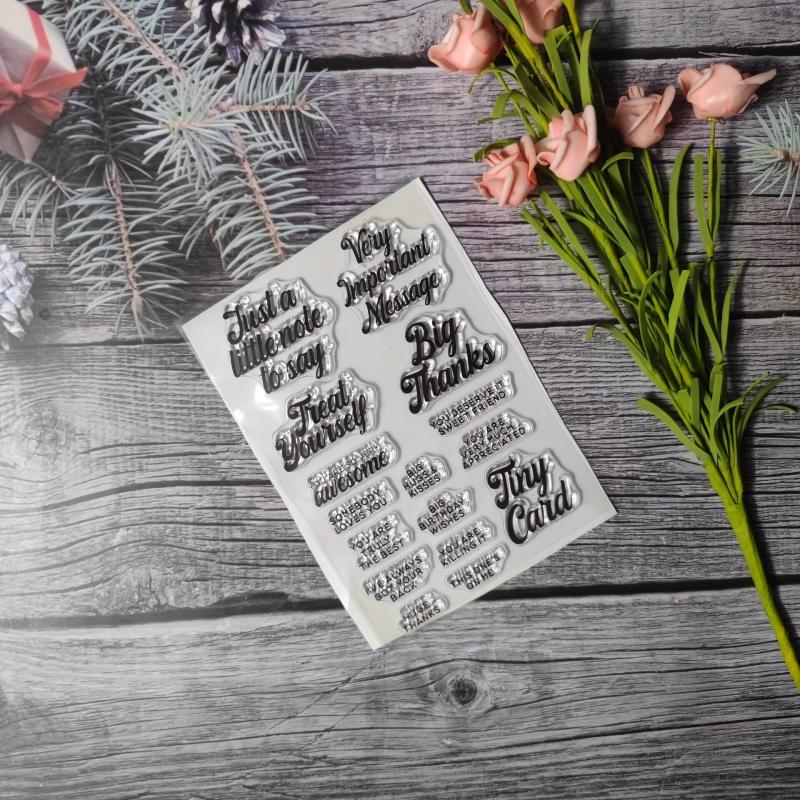 Just a
little note
to say
Very
Important
Message
Big
Thanks
Treat
Yourself
YOU DESERVE IT
SWEET FRIEND
YOU ARE
VERY MUCH
APPRECIATED
awesome
BIG
HUGS &
KISSES
Tiny
Card
SOMEBODY
LOVES YOU
BIG
BIRTHDAY
WISHES
YOU ARE
TRULY
THE BEST
YOU ARE
KILLING IT
I'VE ALWAYS
GOT YOUR
BACK
THIS ONE'S
ON ME
HUGE
THANKS